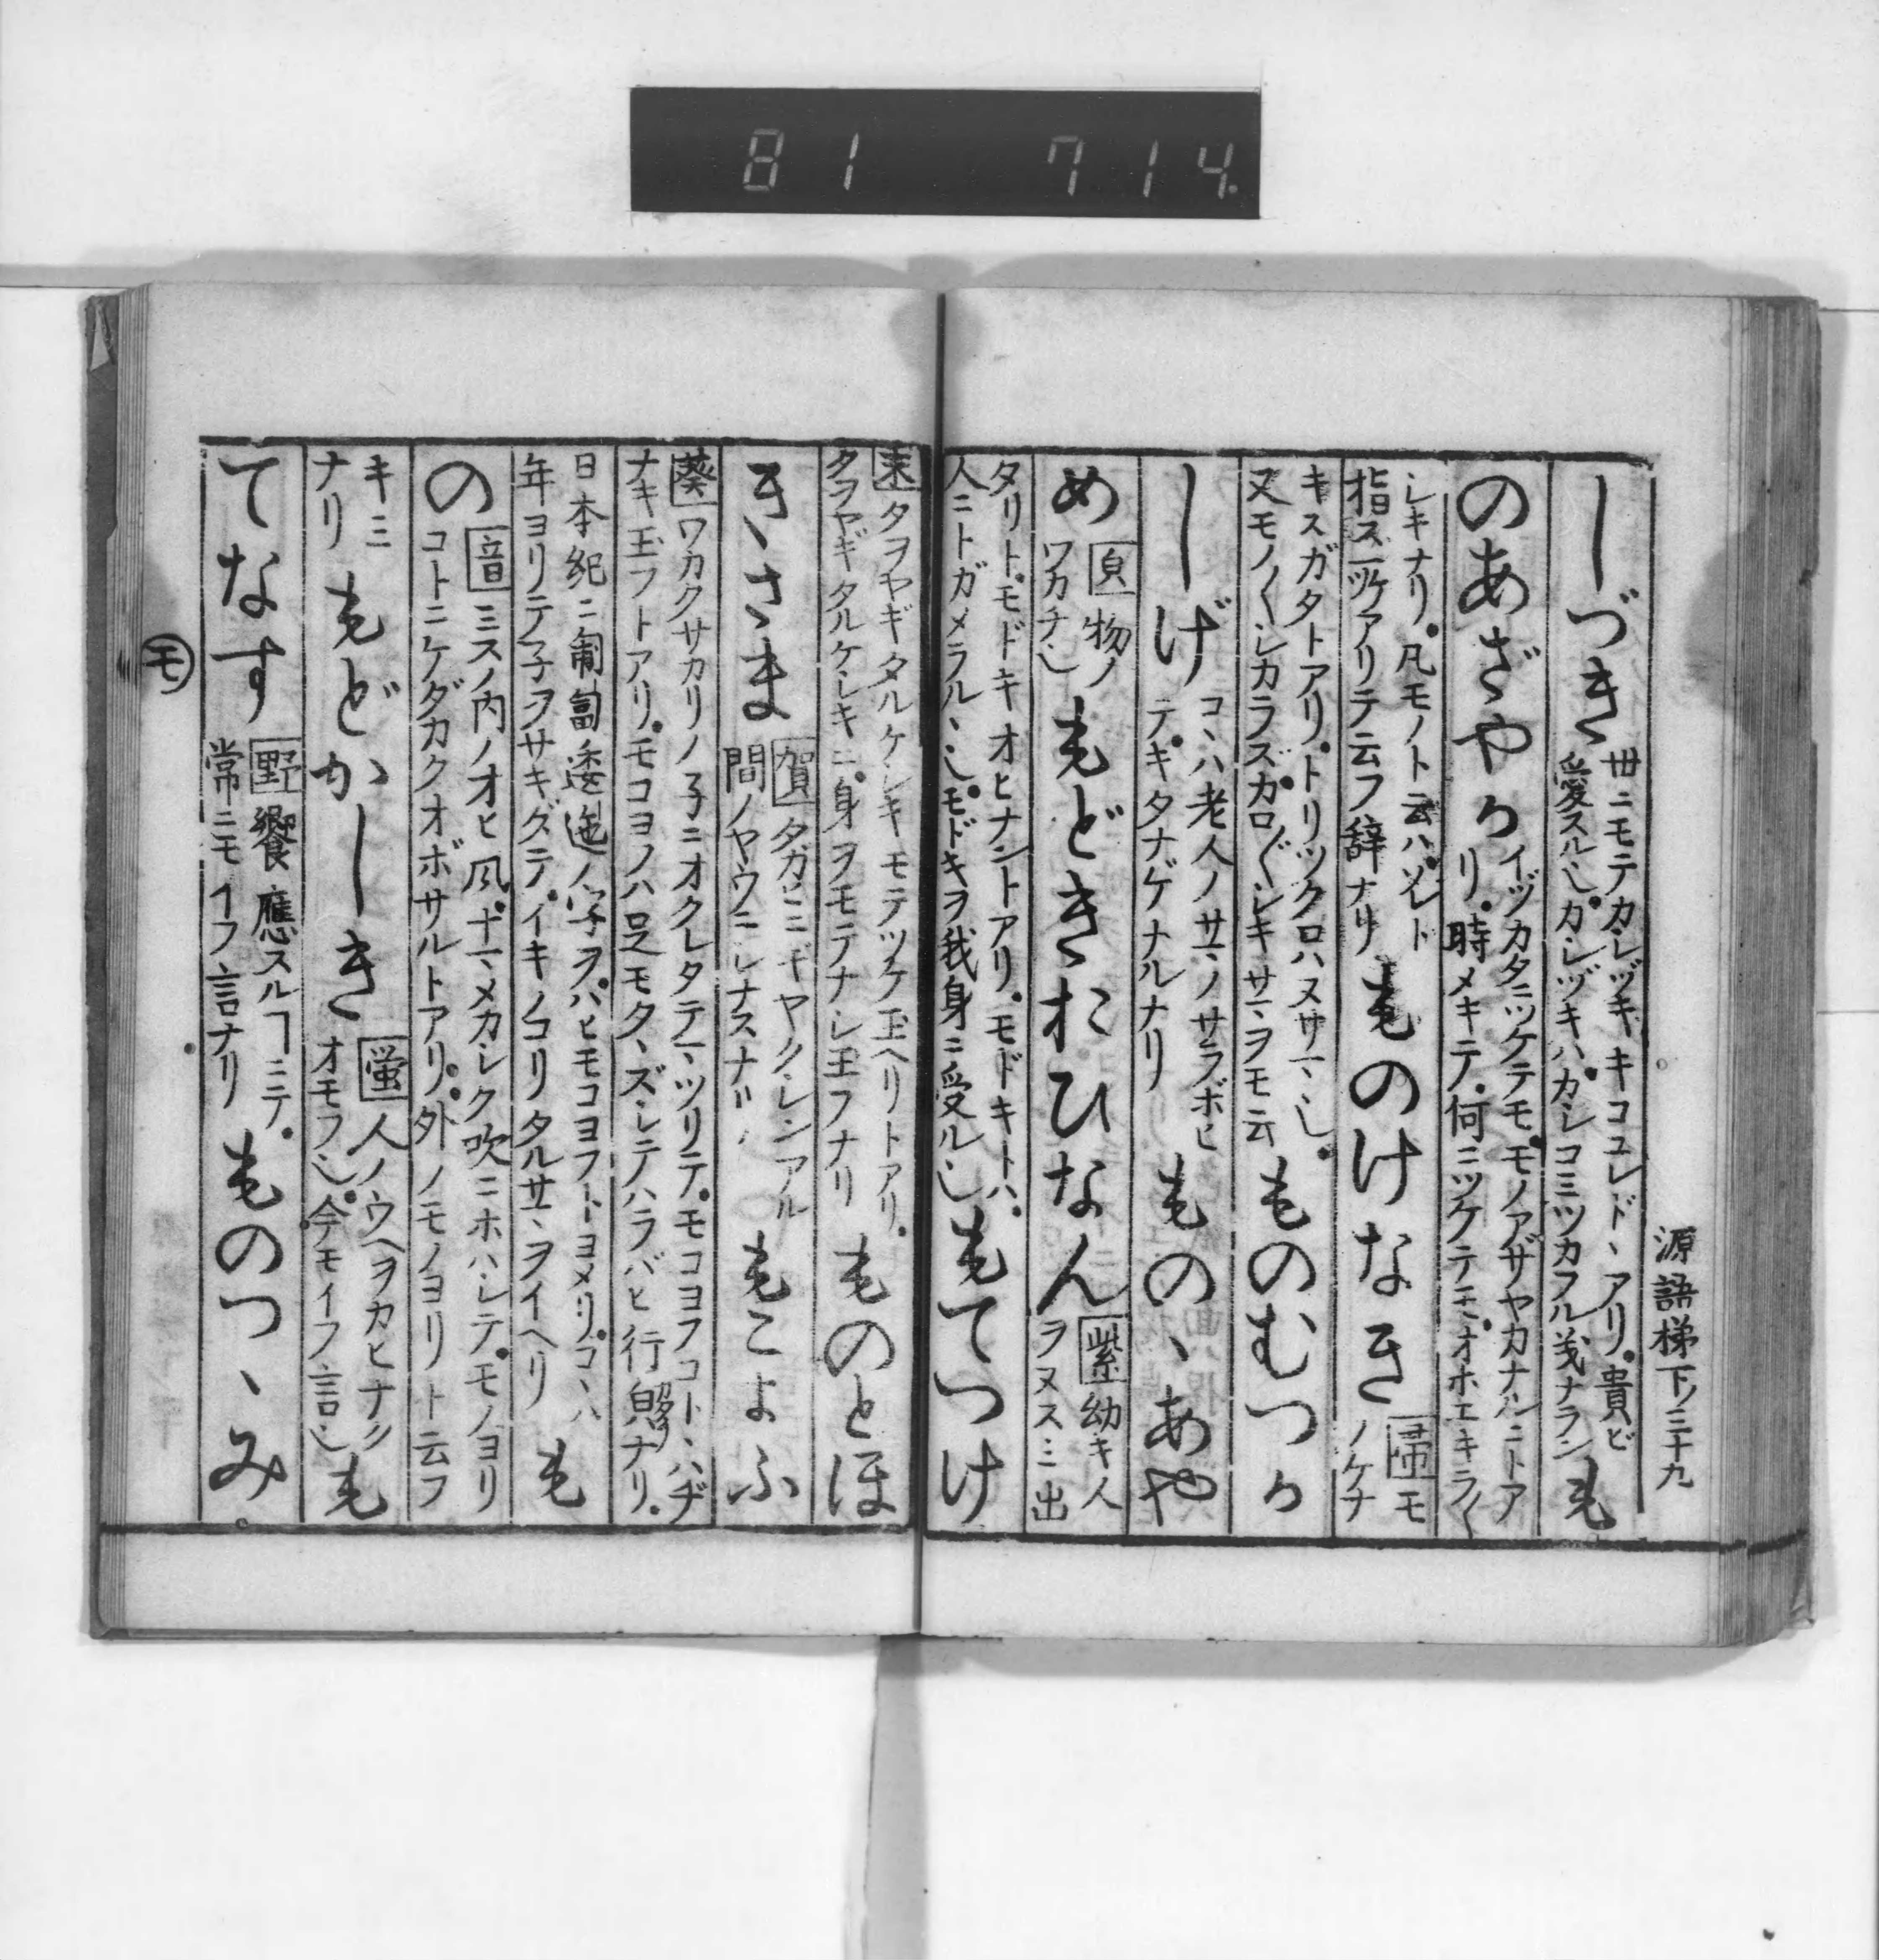 81 714
源語梯下ノ三十九
しづき 世ニモテカシヅキキコユレド、アリ。貴ビ
愛スル也。カシヅキハ。カシコミツカフル義ナラン も
のあざやか イヅカタニツケテモ。モノアザヤカナルニトア
リ。時メキテ。何ニツケテモ。オホエキラ〱
シキナリ。凡モノト云ハ。ソレト
指スヿツケアリテ云フ辞ナリ ものけなき 帚 モ
ノケナ
キスガタトアリ。トリツクロハヌサマ也。
又モノ〱シカラズ。カロ〲シキサマヲモ云 ものむつか
しげ コヽハ老人ノサマノサラボヒ
テ。キタナゲナルナリ ものゝあや
め 㒵 物ノ
ワカチ也 もどきおひなん 紫 幼キ人
ヲヌスミ出
タリト。モドキオヒナントアリ。モドキトハ。
人ニトガメラルヽ也。モドキヲ我身ニ受ル也 もてつけ
末 タヲヤギタルケシキモテツケ玉ヘリトアリ。
タヲヤギタルケシキニ。身ヲモテナシ玉フナリ ものとほ
きさま 賀 タガヒニギヤクシンアル
間ノヤウニシナスナド もこよふ
葵 ワカクサカリノ子ニオクレタテマツリテ。モコヨフコトヽハヂ
ナキ玉フトアリ。モコヨノハ足モタヽズシテハラバヒ行貌ナリ。
日本紀ニ匍匐逶迤ノ字ヲ。ハヒモコヨフトヨメリ。コヽハ
年ヨリテ子ヲサキダテ。イキノコリタルサマヲイヘリ も
の 音 ミスノ内ノオヒ風。ナマメカシク吹ニホハシテ。モノヨリ
コトニケダカクオボサルトアリ。外ノモノヨリト云フ
キミ
ナリ もどかしき 蛍 人ノウヘヲカヒナク
オモフ也。今モイフ言也 も
てなす 野 饗應スルヿニテ。
常ニモイフ言ナリ ものつゝみ
モ